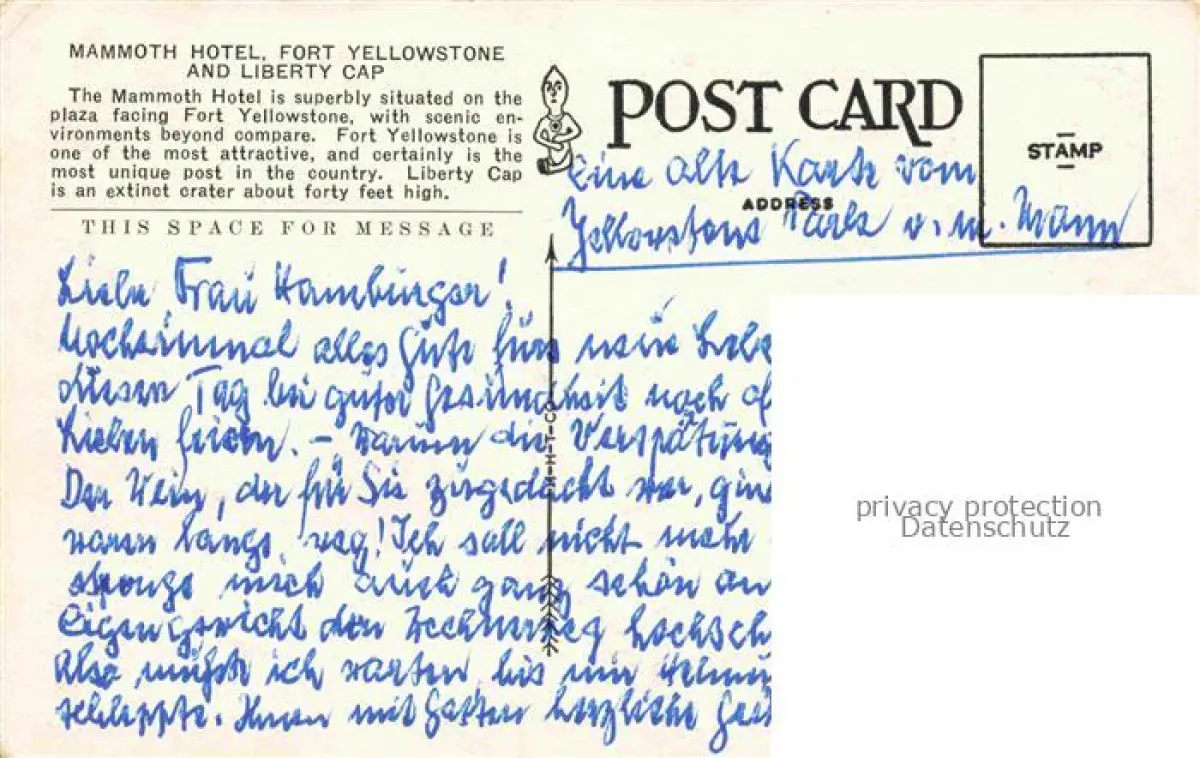 MAMMOTH HOTEL, FORT YELLOWSTONE
AND LIBERTY CAP
The Mammoth Hotel is superbly situated on the
plaza facing Fort Yellowstone, with scenic en-
vironments beyond compare. Fort Yellowstone is
one of the most attractive, and certainly is the
most unique post in the country. Liberty Cap
is an extinct crater about forty feet high.
THIS SPACE FOR MESSAGE
POST CARD
STAMP
ADDRESS
H-H-T-CO
Eine alte Karte vom
Yellowstone Park v. m. Mann
Liebe Frau Hamburger!
Nocheinmal alles Gute fürs neue Lebe
diesen Tag bei guter Gesundheit noch
Lieben feiern. – Warum die Verspätung
Der Wein, der für Sie zugedacht war, gin
waren längs. weg! Ich soll nicht mehr
mich auch ganz schön an
Eigengewicht den hochsch
Also mußte ich warten bis mir Helmu
schleppte. Ihnen mit Gatten herzliche
privacy protection
Datenschutz